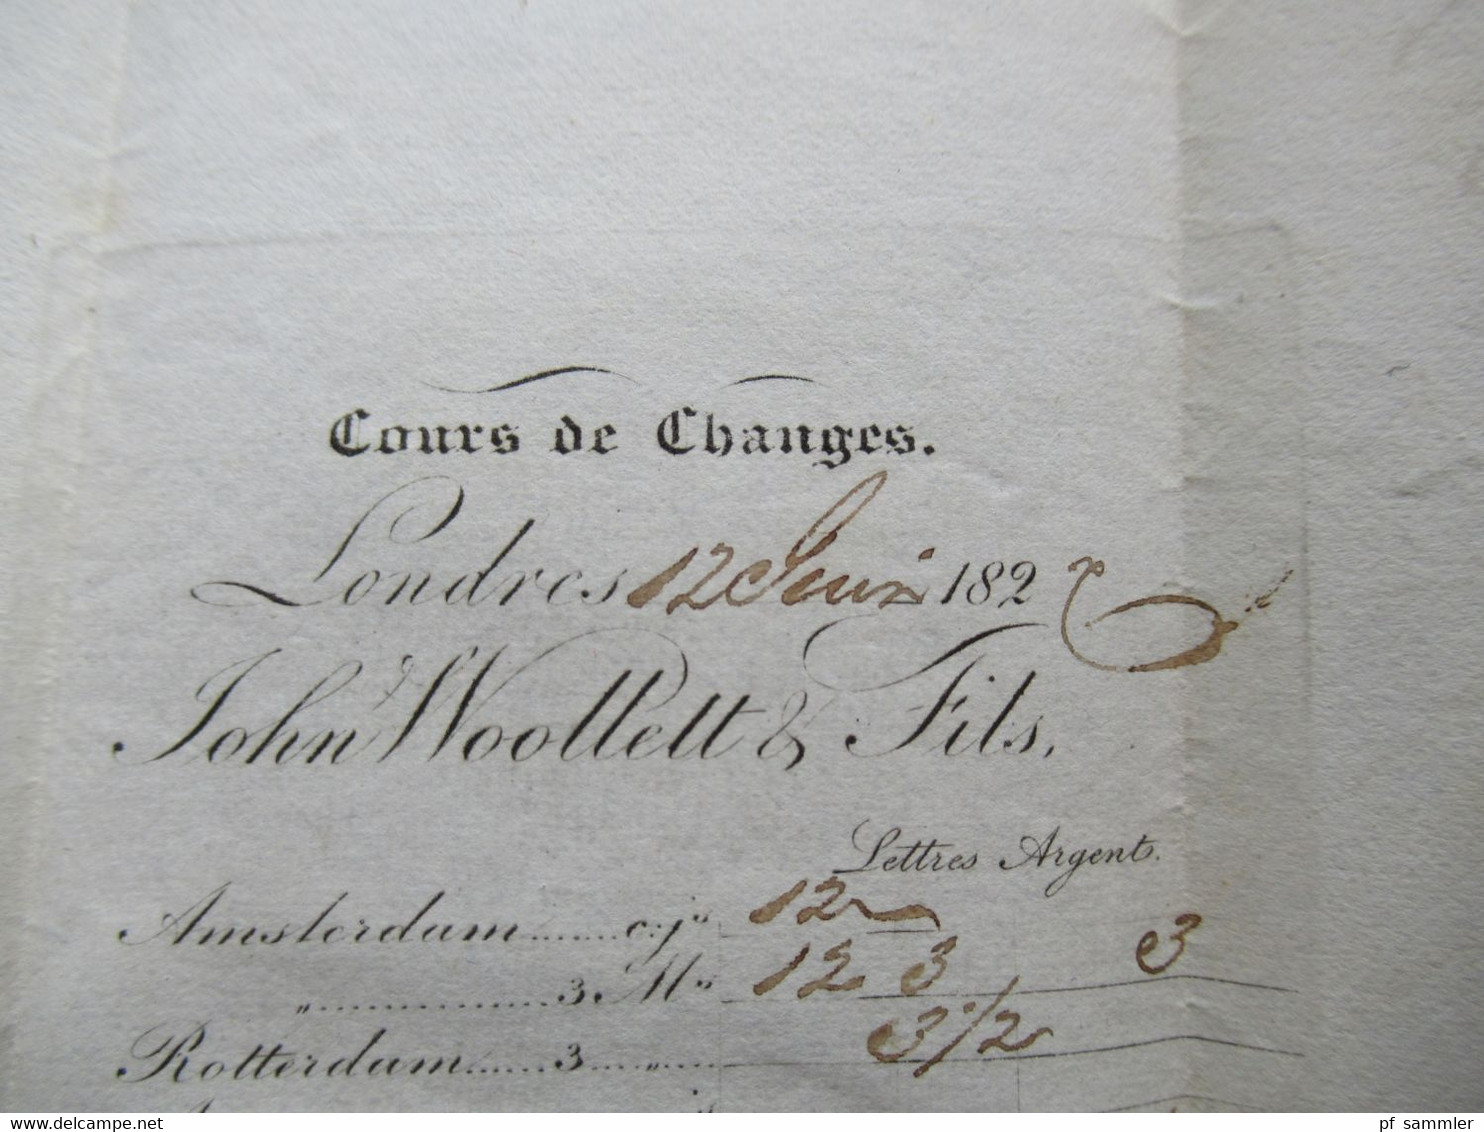 Cours de Changes.
Londres 12 Juin 182
John Woollett & Fils.
Lettres Argent.
Amsterdam ........ c:js 12
" ................ 3 Ms 12 3 3
Rotterdam ...... 3 ... " ... 3 1/2
pf_sammler
www.delcampe.net